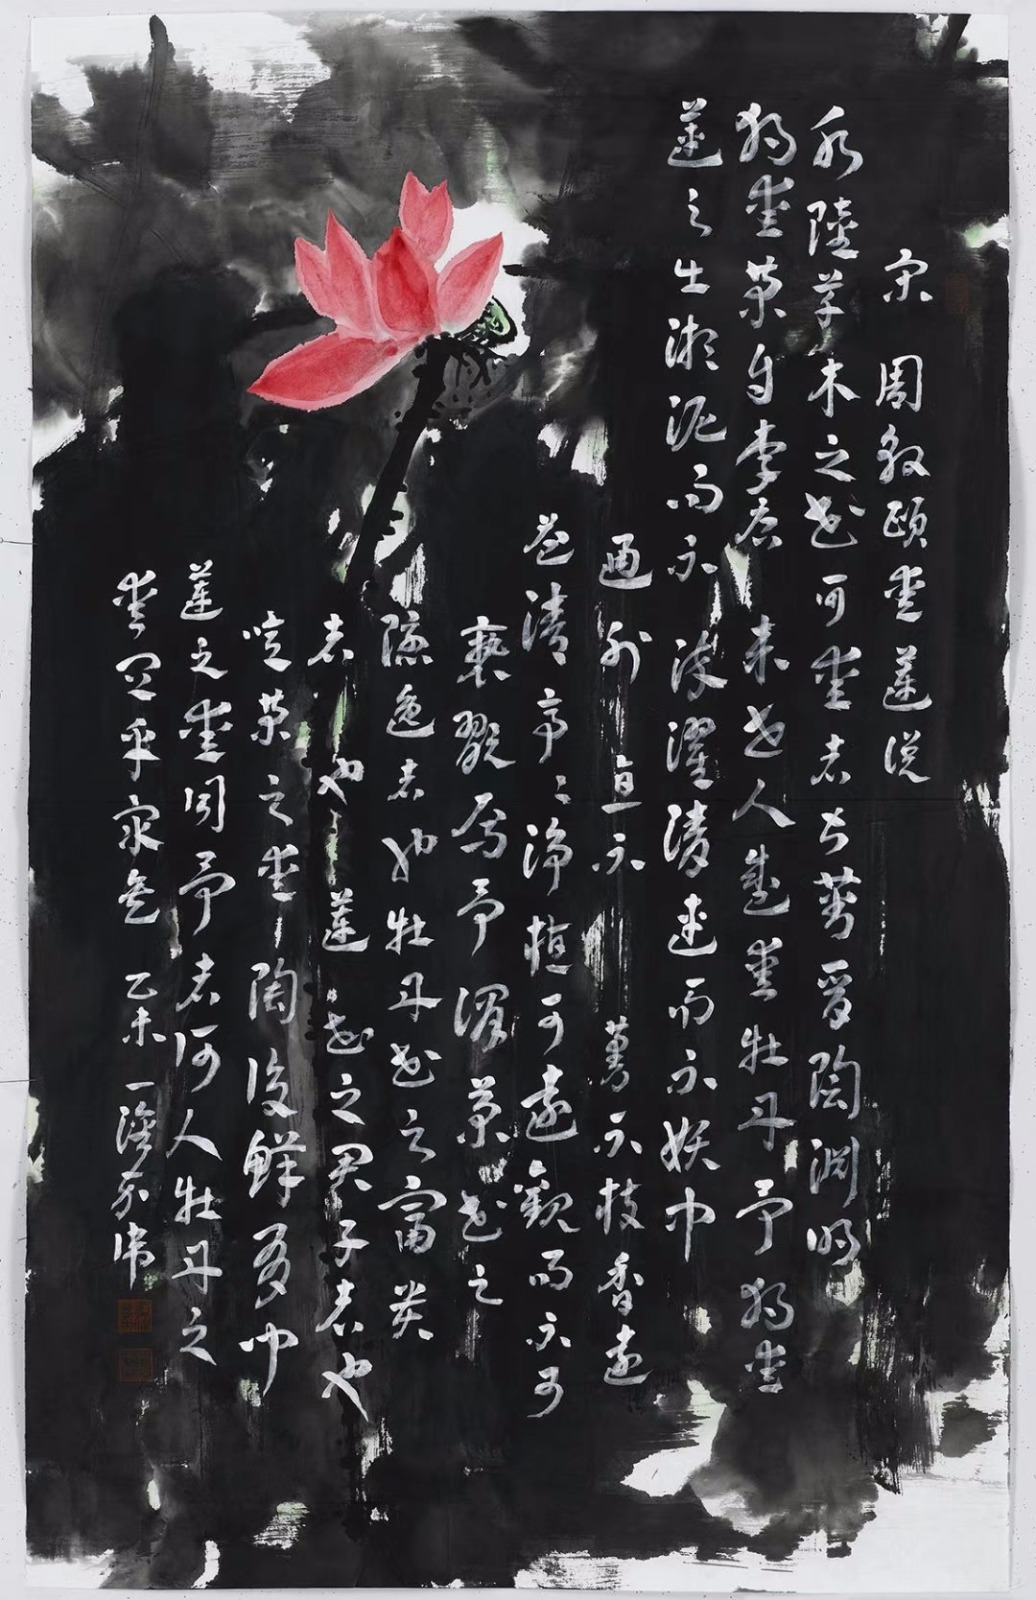 宋 周敦頤愛蓮说
水陸草木之花可愛者甚蕃晉陶渊明
獨愛菊自李唐来世人盛愛牡丹予獨愛
蓮之出淤泥而不染濯清漣而不妖中
通外直不蔓不枝香遠
益清亭〻净植可遠觀而不可
褻翫焉予謂菊花之
隱逸者也牡丹花之富貴
者也蓮花之君子者也
噫菊之愛陶後鮮有闻
蓮之愛同予者何人牡丹之
愛宜乎衆矣 乙未